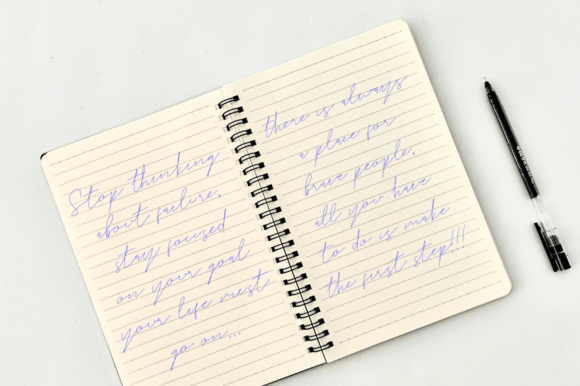 Stop thinking
about failure,
stay focused
on your goal
your life must
go on...
there is always
a place for
brave people,
all you have
to do is make
the first step!!!